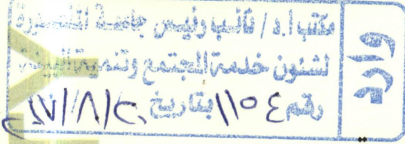 مكتب ا.د / نائب رئيس جامعة المنصورة
لشئون خدمة المجتمع وتنمية البيئة
رقم ١١٥٤ بتاريخ ٢٠١٧/٨/٢٠
وارد